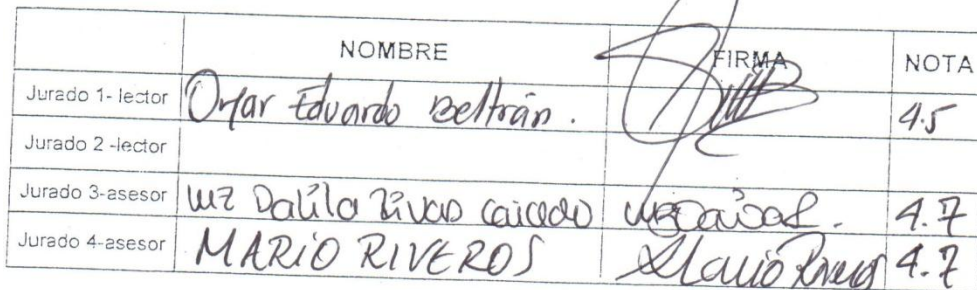 NOMBRE FIRMA NOTA
Jurado 1- lector Omar Eduardo Beltrán. 4.5
Jurado 2 -lector
Jurado 3-asesor Luz Dalila Rivas Caicedo 4.7
Jurado 4-asesor MARIO RIVEROS Mario Riveros 4.7